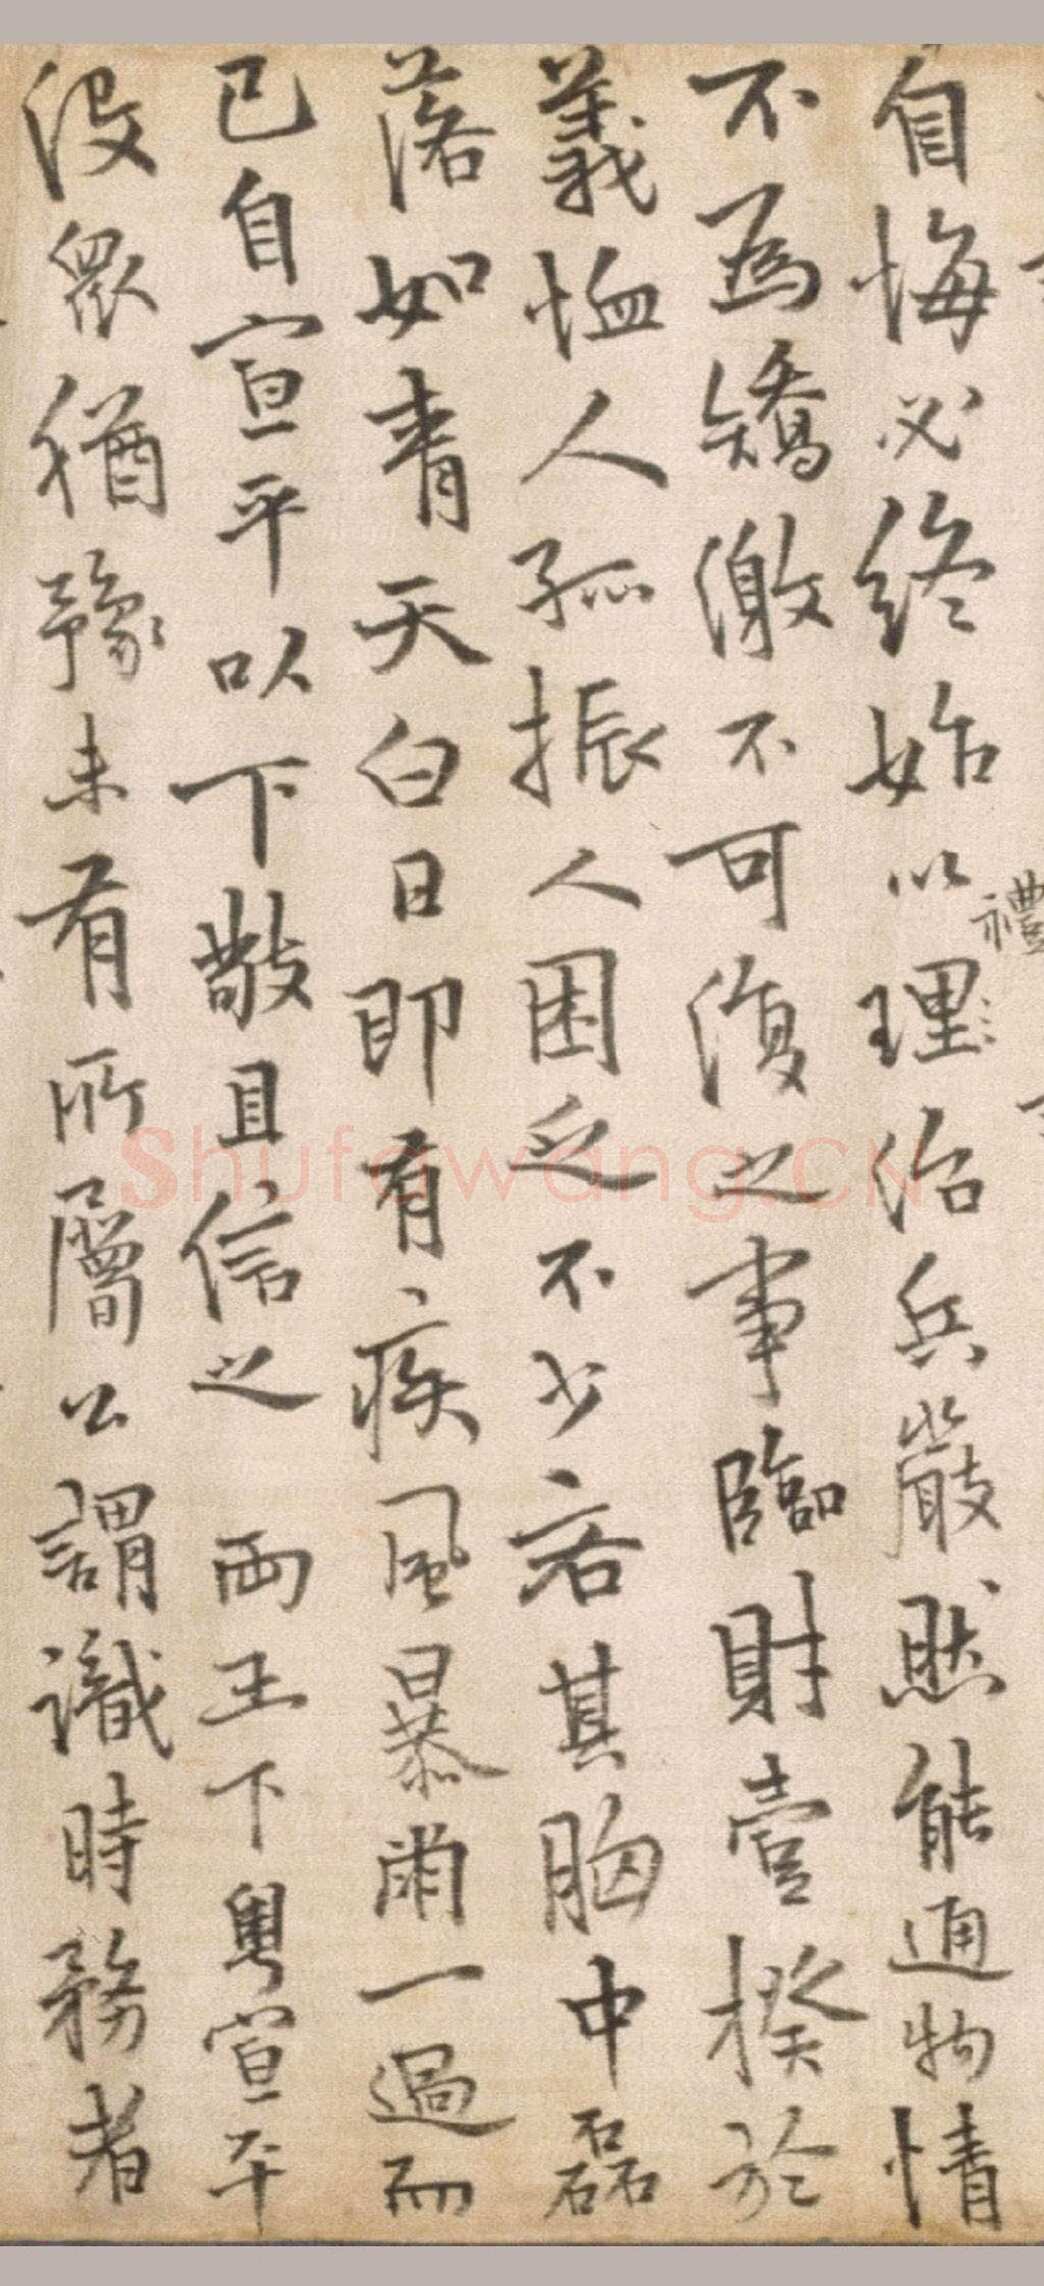 自悔必终始以理治兵嚴然能通物情
禮
不為矯激不可復之事臨財壹揆於
義恤人孤振人困乏不少吝其胸中磊
落如青天白日即有疾風暴雨一過而
已自宣平以下敬且信之 两王下粤宣平
没眾猶豫未有所屬公謂識時務者
Shufawang.CN